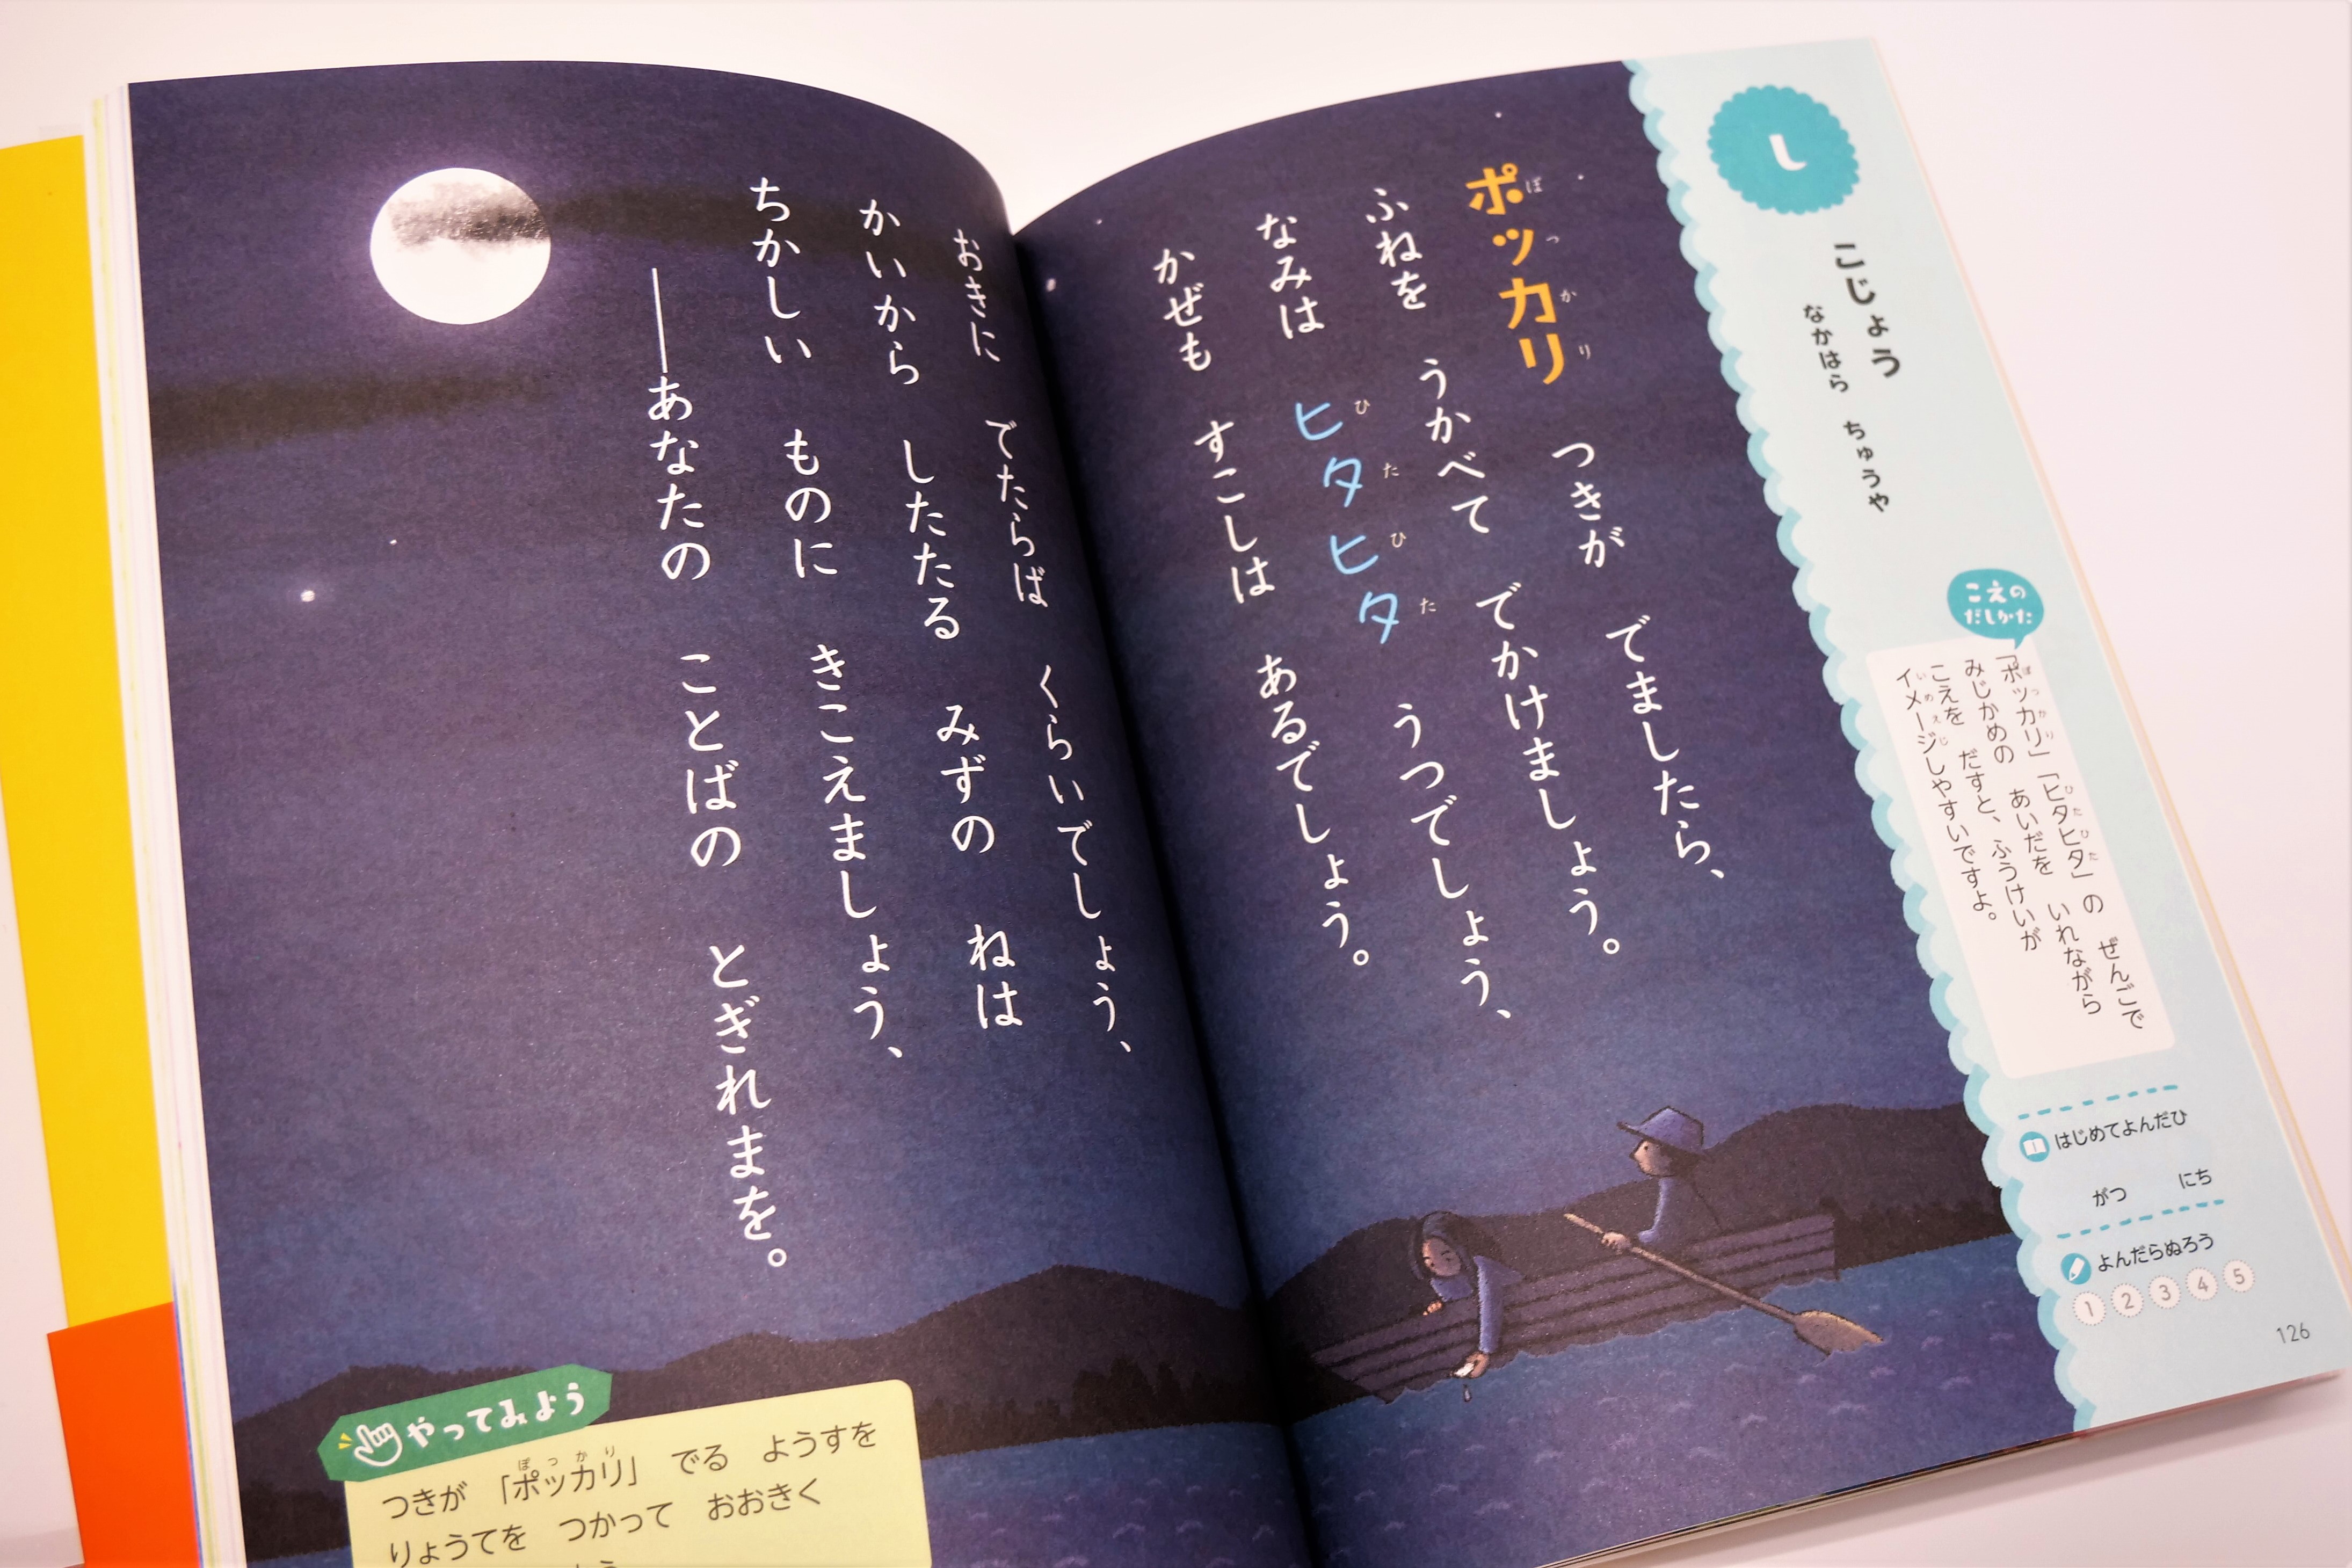 し
こじょう
なかはら ちゅうや
こえの
だしかた
「ポッカリ」「ヒタヒタ」の ぜんごで
みじかめの あいだを いれながら
こえを だすと、ふうけいが
イメージしやすいですよ。
はじめてよんだひ
がつ にち
よんだらぬろう
1 2 3 4 5
126
ポッカリ つきが でましたら、
ふねを うかべて でかけましょう。
なみは ヒタヒタ うつでしょう、
かぜも すこしは あるでしょう。
おきに でたらば くらいでしょう、
かいから したたる みずの ねは
ちかしい ものに きこえましょう、
――あなたの ことばの とぎれまを。
やってみよう
つきが 「ポッカリ」 でる ようすを
りょうてを つかって おおきく